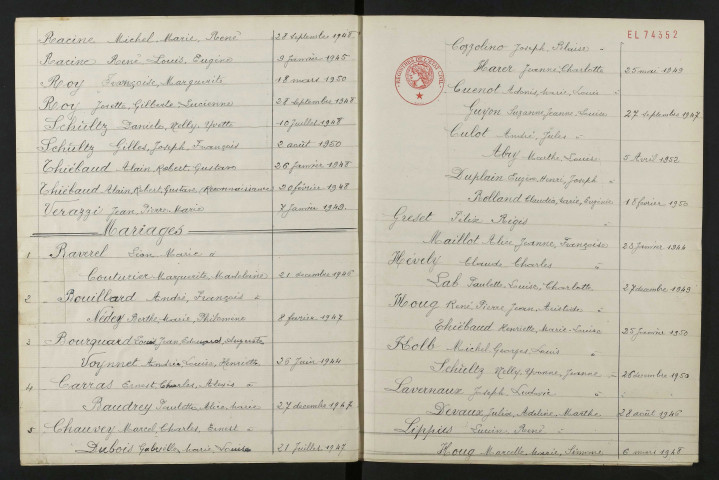 Racine Michel Marie, René 28 septembre 1948
Racine René Louis, Eugène 9 janvier 1945
Roy Françoise, Marguerite 18 mars 1950
Roy Josette Gilberte Lucienne 28 septembre 1948
Schieltz Daniele, Kelly, Yvette 10 juillet 1948
Schieltz Gilles, Joseph, François 2 août 1950
Thiébaud Alain Robert Gustave 26 janvier 1948
Thiébaud Alain Robert Gustave (Reconnaissance) 20 février 1948
Verazzi Jean Pierre Marie 7 janvier 1949
Mariages
1 Raverel Léon Marie "
Couturier Marguerite, Madeleine 21 décembre 1946
2 Rouillard André, François &
Nédey Berthe, Marie, Philomène 8 février 1947
3 Bourquard Louis Jean Edouard Auguste
Voynnet Andrée Louise, Henriette 26 juin 1944
4 Carras Ernest Charles, Aloys &
Baudrey Paulette, Alice, Marie 27 décembre 1947
5 Chauvey Marcel, Charles, Ernest &
Dubois Gabrielle, Marie, Louise 21 juillet 1947
EL 74552
Cozzolino Joseph, Blaise &
Harer Jeanne, Charlotte 25 mai 1949
Cuenot Adonis, Marie, Louis &
Guyon Suzanne, Jeanne, Louise 27 septembre 1947
Culot André, Jules &
Abry Marthe, Louise 5 Avril 1952
Duplain Eugène, Henri, Joseph &
Rolland Claudia, Marie, Eugénie 18 février 1950
Greset Félix Régis &
Maillot Aline, Jeanne, Françoise 23 janvier 1944
Hévely Claude, Charles &
Lab Paulette, Louise, Charlotte 27 décembre 1949
Houg René, Pierre, Jean, Aristide &
Thiébaud Henriette, Marie-Louise 25 janvier 1950
Kolb Michel, Georges, Louis &
Schieltz Kelly, Yvonne, Jeanne & 26 décembre 1950
Lavernaux Joseph, Ludovic &
Devaux Julia, Adeline, Marthe 28 août 1946
Lippius Lucien, René &
Houg Marcelle, Marie, Simone 6 mars 1948